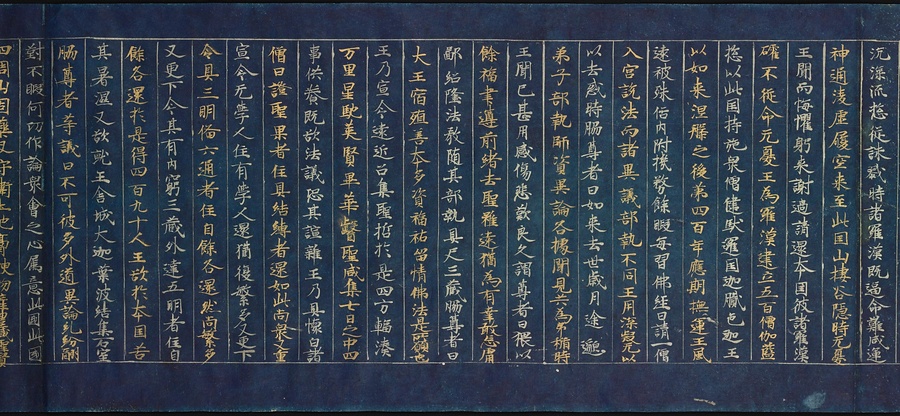 沉深流總從誅戮時諸羅漢既逼命難咸運
神通凌虛履空來至此国山棲谷隱時无憂
王聞而悔懼躬来謝過請還本国彼諸羅漢
確不從命无憂王為羅漢建立五百僧伽藍
惣以此国持施衆僧健馱邏国迦膩色迦王
以如来涅槃之後第四百年應期撫運王風
遠被殊俗内附機務餘暇每習佛經日請一僧
入宮說法而諸異議部執不同王用深疑无以
以去惑時脇尊者曰如来去世歲月逾邈
弟子部執師資異論各據聞見共為矛楯時
王聞已甚用感傷悲歎良久謂尊者曰猥以
餘福聿遵前緒去聖雖遠猶為有幸敢忘庸
鄙紹隆法教随其部執具尺三藏脇尊者曰
大王宿殖善本多資福祐留情佛法是所願也
王乃宣令遠近召集聖哲於是四方輻湊
万里星馳英賢畢萃叡聖咸集七日之中四
事供養既欲法議恐其諠雜王乃具懷白諸
僧曰證聖果者住具結縛者還如此尚衆重
宣令无學人住有學人還猶復繁多又更下
令具三明俻六通者住自餘各還然尚繁多
又更下令其有內窮三藏外達五明者住自
餘各還於是得四百九十人王欲於本国苦
其暑溼又欲就王舍城大迦葉波結集石室
脇尊者等議曰不可彼多外道異論糺紛酬
對不暇何功作論衆會之心属意此国此国
四周山固藥叉守衛土地膏腴物產豐盛